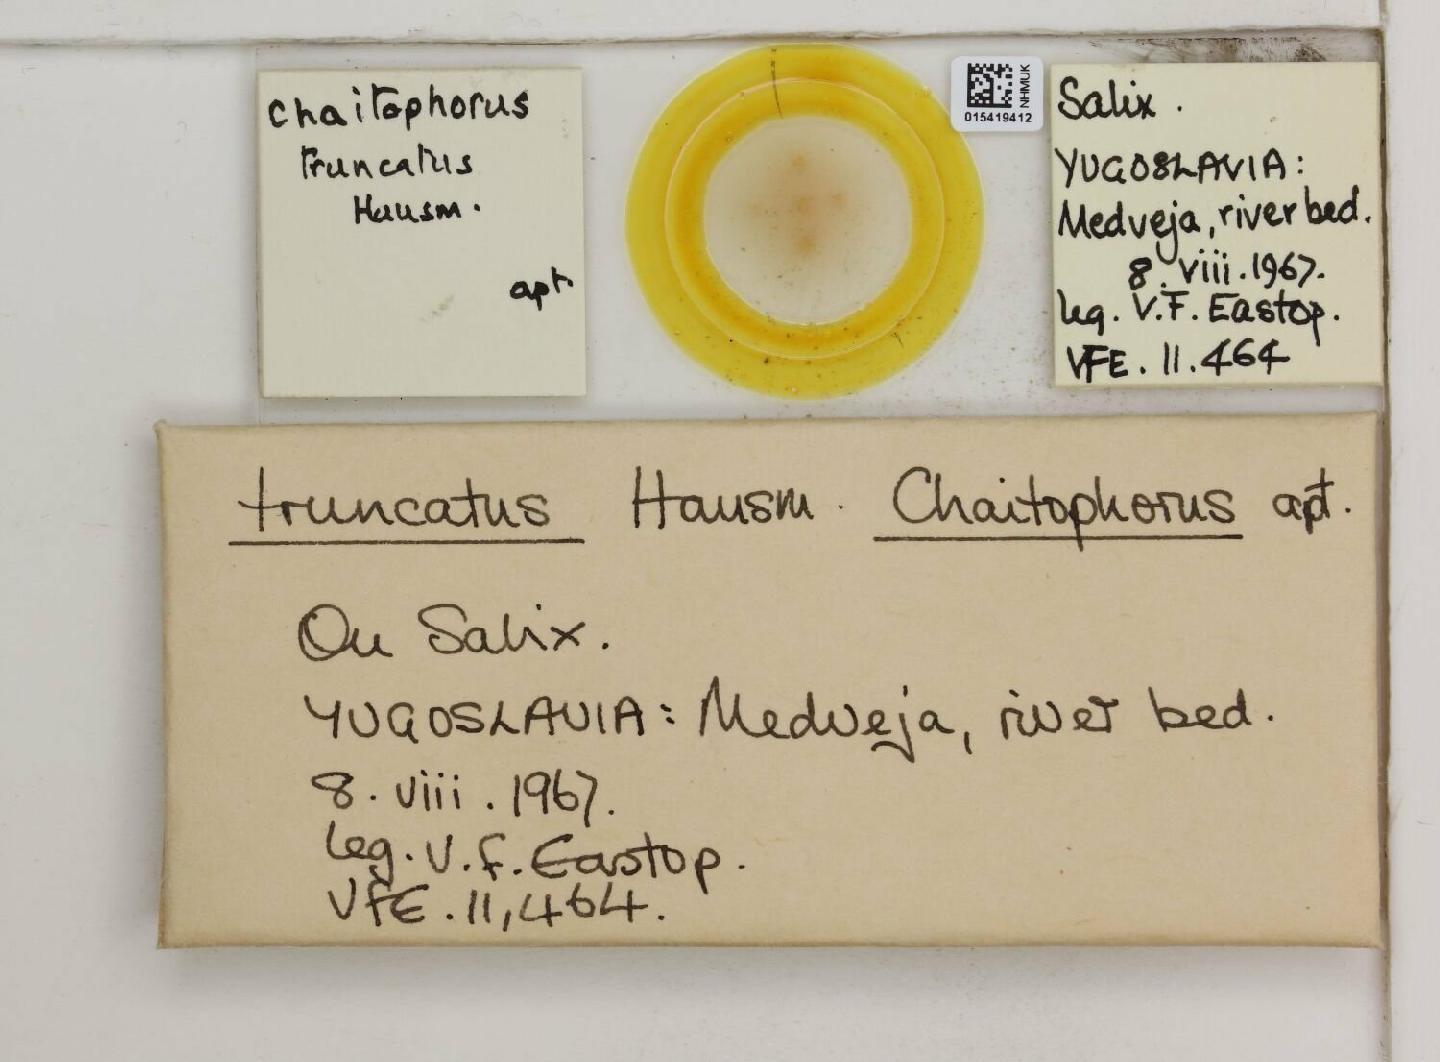 Chaitophorus
truncatus
Hausm.
apt.
NHMUK
015419412
Salix.
YUGOSLAVIA:
Medveja, river bed.
8. viii. 1967.
leg. V.F. Eastop.
VFE. 11.464
truncatus Hausm. Chaitophorus apt.
On Salix.
YUGOSLAVIA: Medveja, river bed.
8. viii. 1967.
leg. V.F. Eastop.
VFE. 11,464.